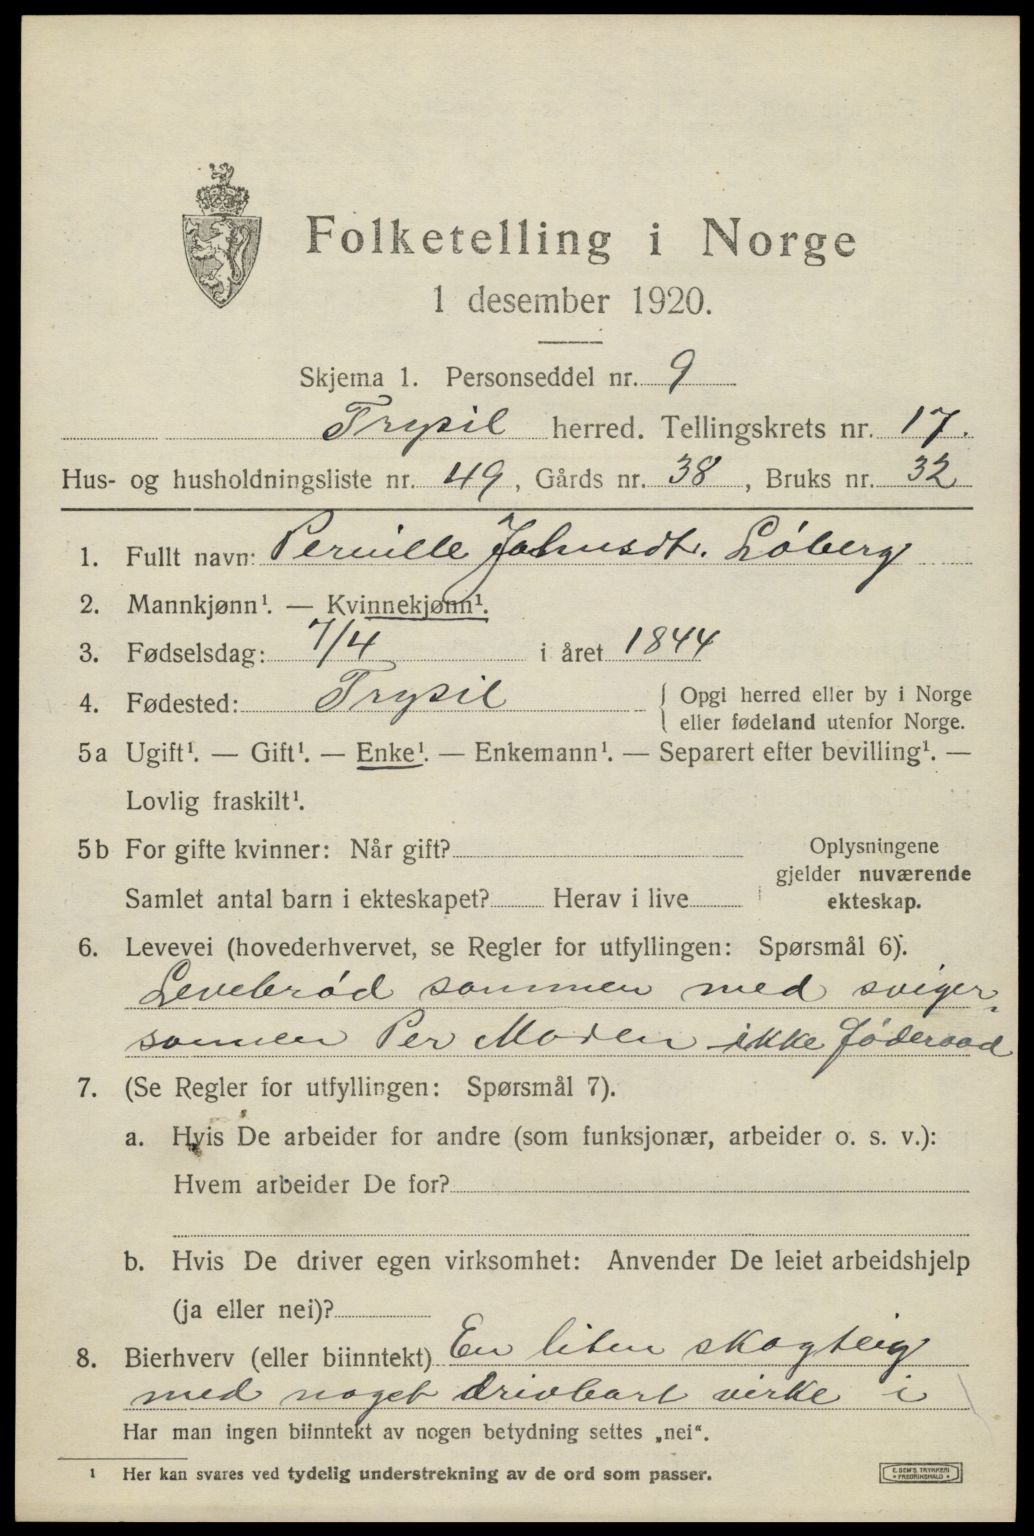 Folketelling i Norge
1 desember 1920.
Skjema 1. Personseddel nr. 9
Trysil herred. Tellingskrets nr. 17.
Hus- og husholdningsliste nr. 49, Gårds nr. 38, Bruks nr. 32
1. Fullt navn: Pernille Johnsdt. Løberg
2. Mannkjønn¹. — Kvinnekjønn¹.
3. Fødselsdag: 7/4 i året 1844
4. Fødested: Trysil { Opgi herred eller by i Norge
eller fødeland utenfor Norge.
5a Ugift¹. — Gift¹. — Enke¹. — Enkemann¹. — Separert efter bevilling¹. —
Lovlig fraskilt¹.
5b For gifte kvinner: Når gift? Oplysningene
gjelder nuværende
Samlet antal barn i ekteskapet? Herav i live ekteskap.
6. Levevei (hovederhvervet, se Regler for utfyllingen: Spørsmål 6).
Levebrød sammen med sviger-
sønnen Per Moren ikke føderaad
7. (Se Regler for utfyllingen: Spørsmål 7).
a. Hvis De arbeider for andre (som funksjonær, arbeider o. s. v.):
Hvem arbeider De for?
b. Hvis De driver egen virksomhet: Anvender De leiet arbeidshjelp
(ja eller nei)?
8. Bierhverv (eller biinntekt) En liten skogteig
med noget drivbart virke i
Har man ingen biinntekt av nogen betydning settes „nei“.
¹ Her kan svares ved tydelig understrekning av de ord som passer.
E. SEM'S TRYKKERI
FREDRIKSHALD